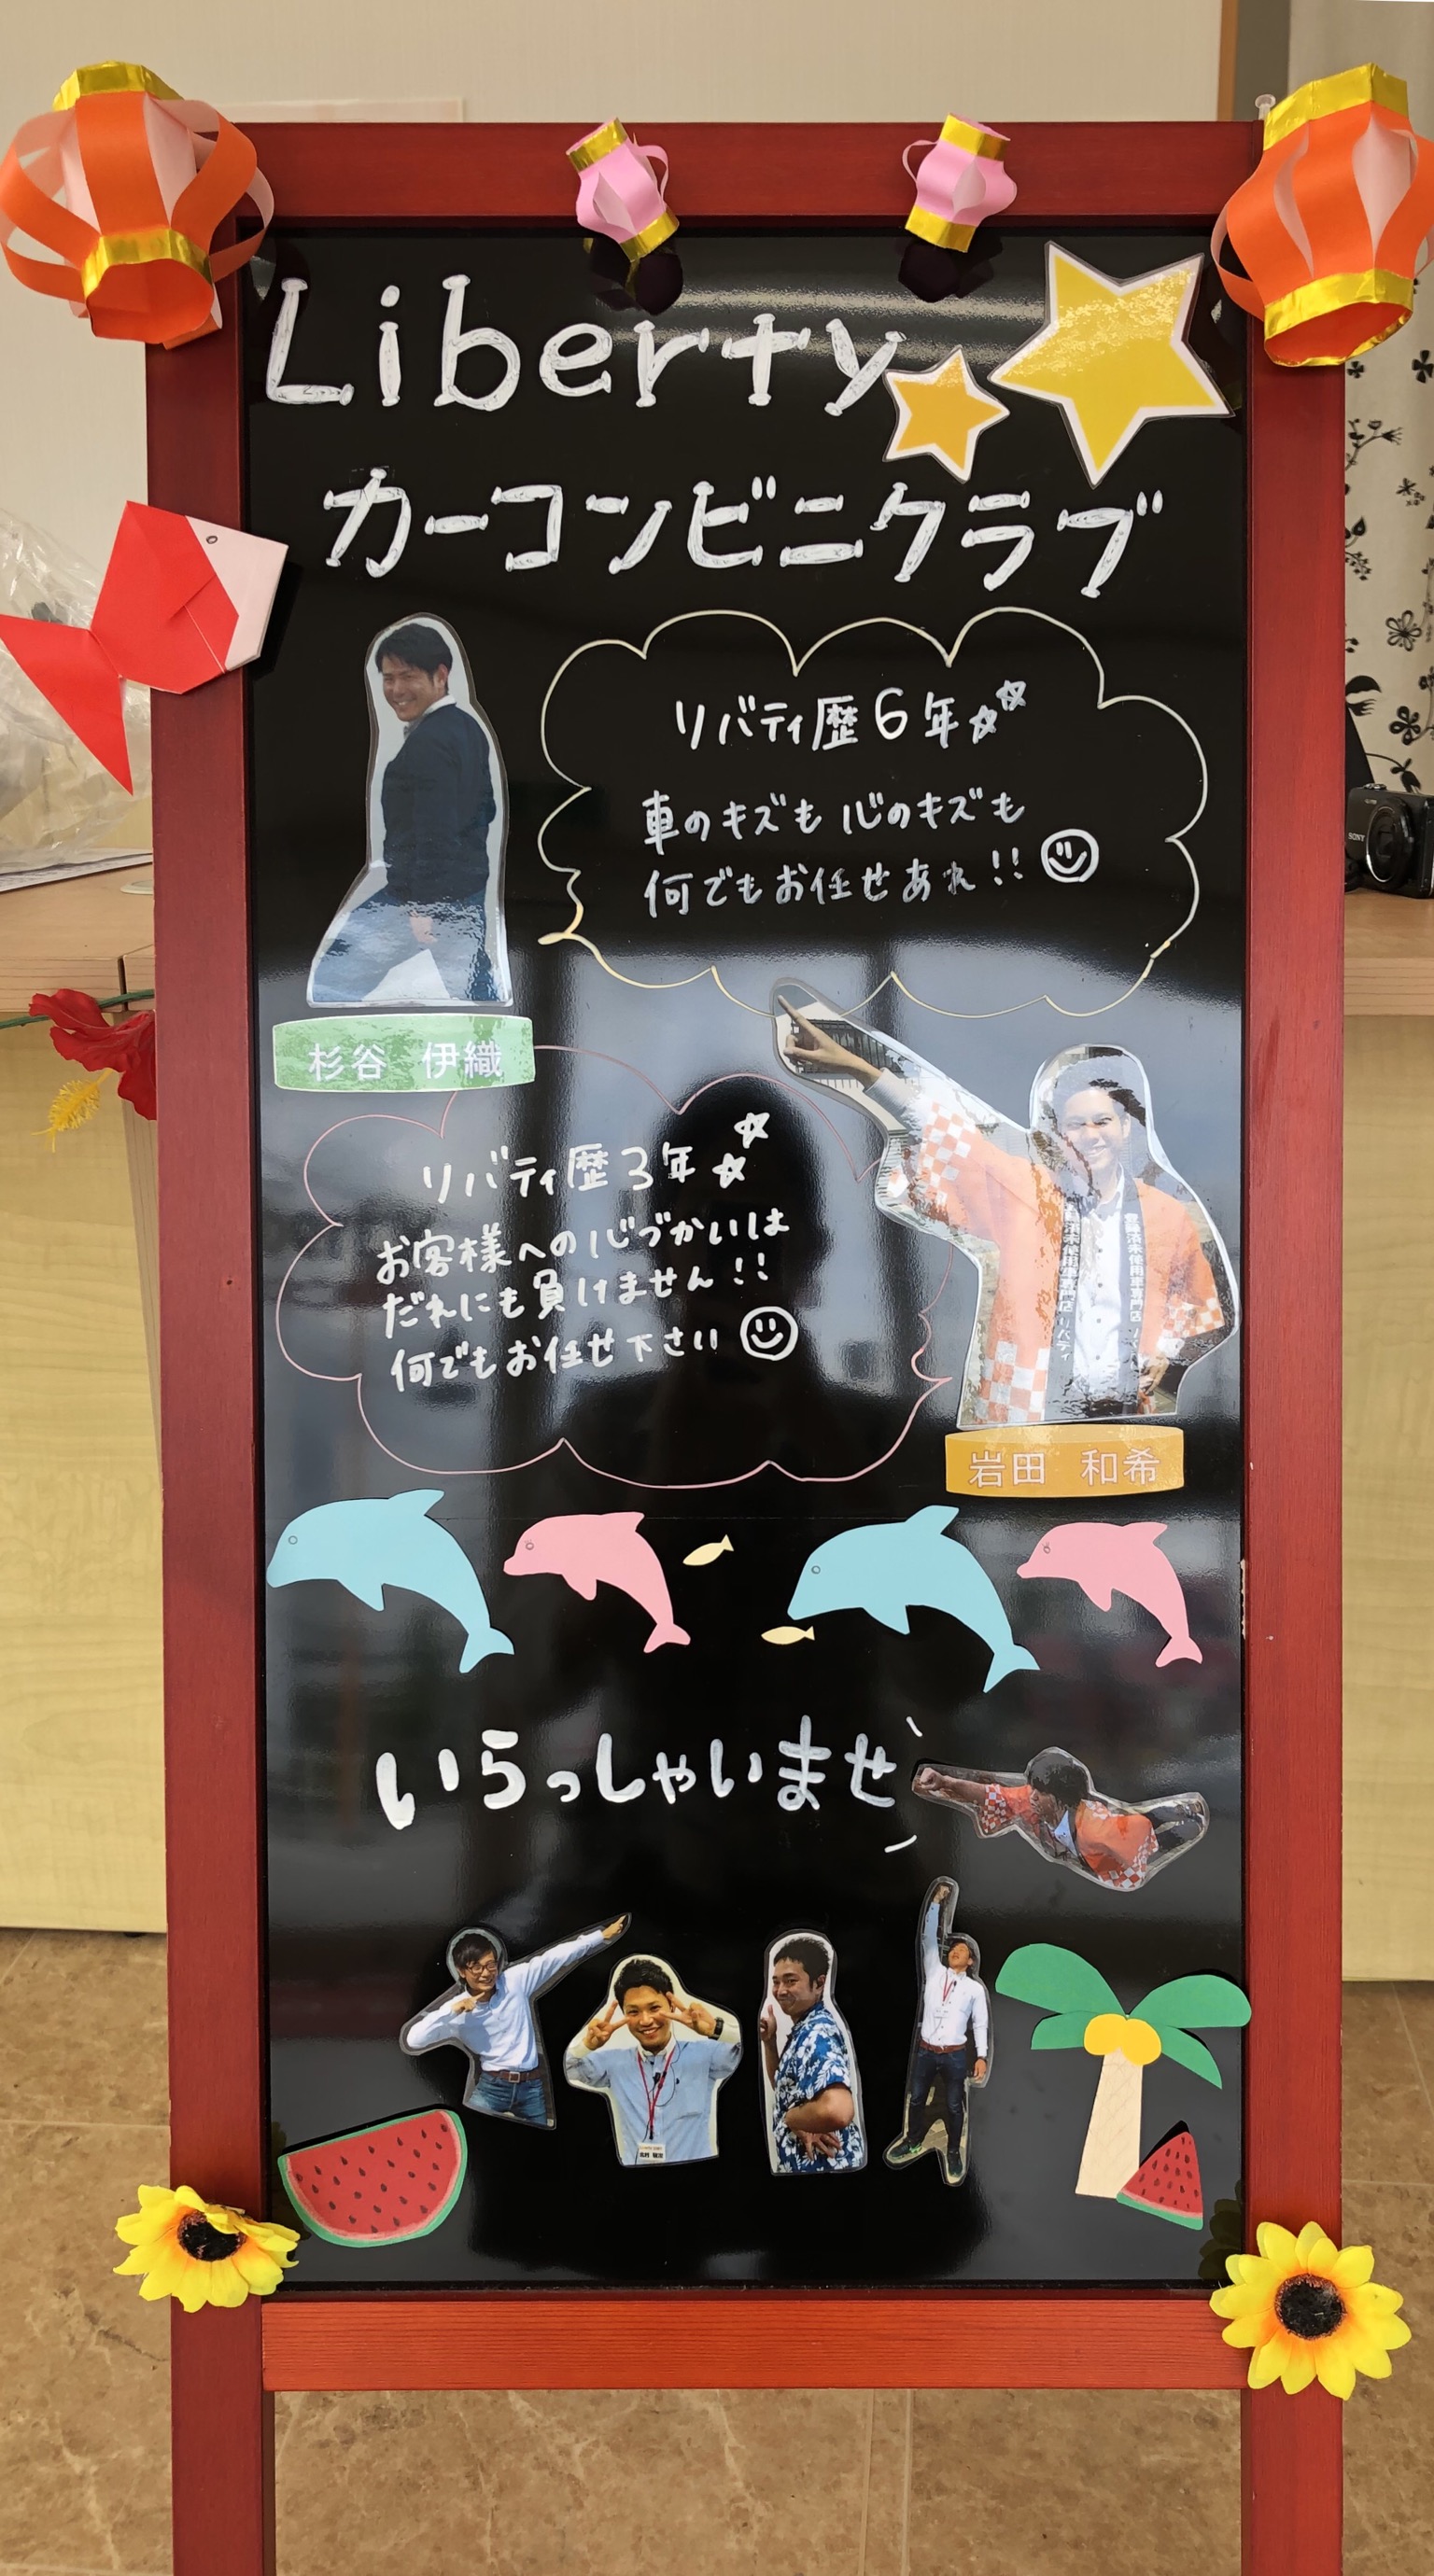 Liberty
カーコンビニクラブ
リバティ歴6年☆☆
車のキズも心のキズも
何でもお任せあれ!!
杉谷 伊織
リバティ歴3年☆☆
お客様への心づかいは
だれにも負けません!!
何でもお任せ下さい
岩田 和希
いらっしゃいませ
SONY